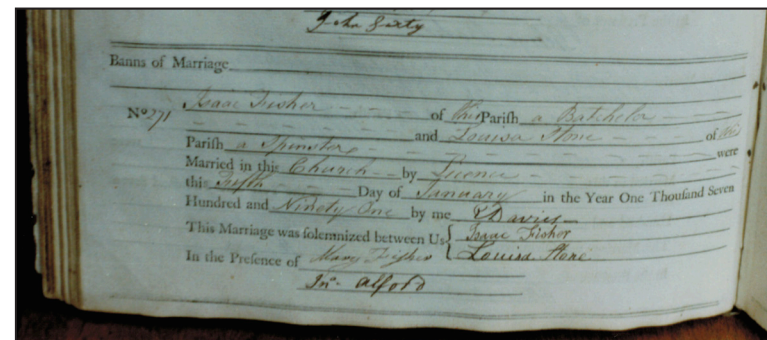 John Sixty
Banns of Marriage
No 271 Isaac Fisher of this Parish a Batchelor
and Louisa Stone of this
Parish a Spinster were
Married in this Church by Licence
this Fifth Day of January in the Year One Thousand Seven
Hundred and Ninety One by me Davies
This Marriage was solemnized between Us { Isaac Fisher
Louisa Stone
In the Presence of Mary Fisher
Jno. Alford